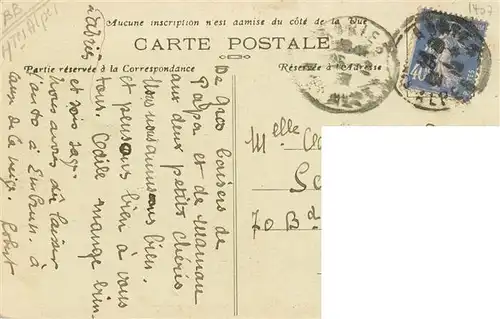 BB
Htes Alpes
1407
Aucune inscription n'est admise du côté de la vue
CARTE POSTALE
Partie réservée à la Correspondance
Réservée à l'Adresse
40
De gros baisers de
Papa et de Maman
aux deux petits chéris
Nous nous amusons bien
et pensons bien à vous
tous. Odile mange bien
et sois sage.
Nous avons dû laisser
l'auto à Embrun à
cause de la neige. Robert
Melle
70 Bd